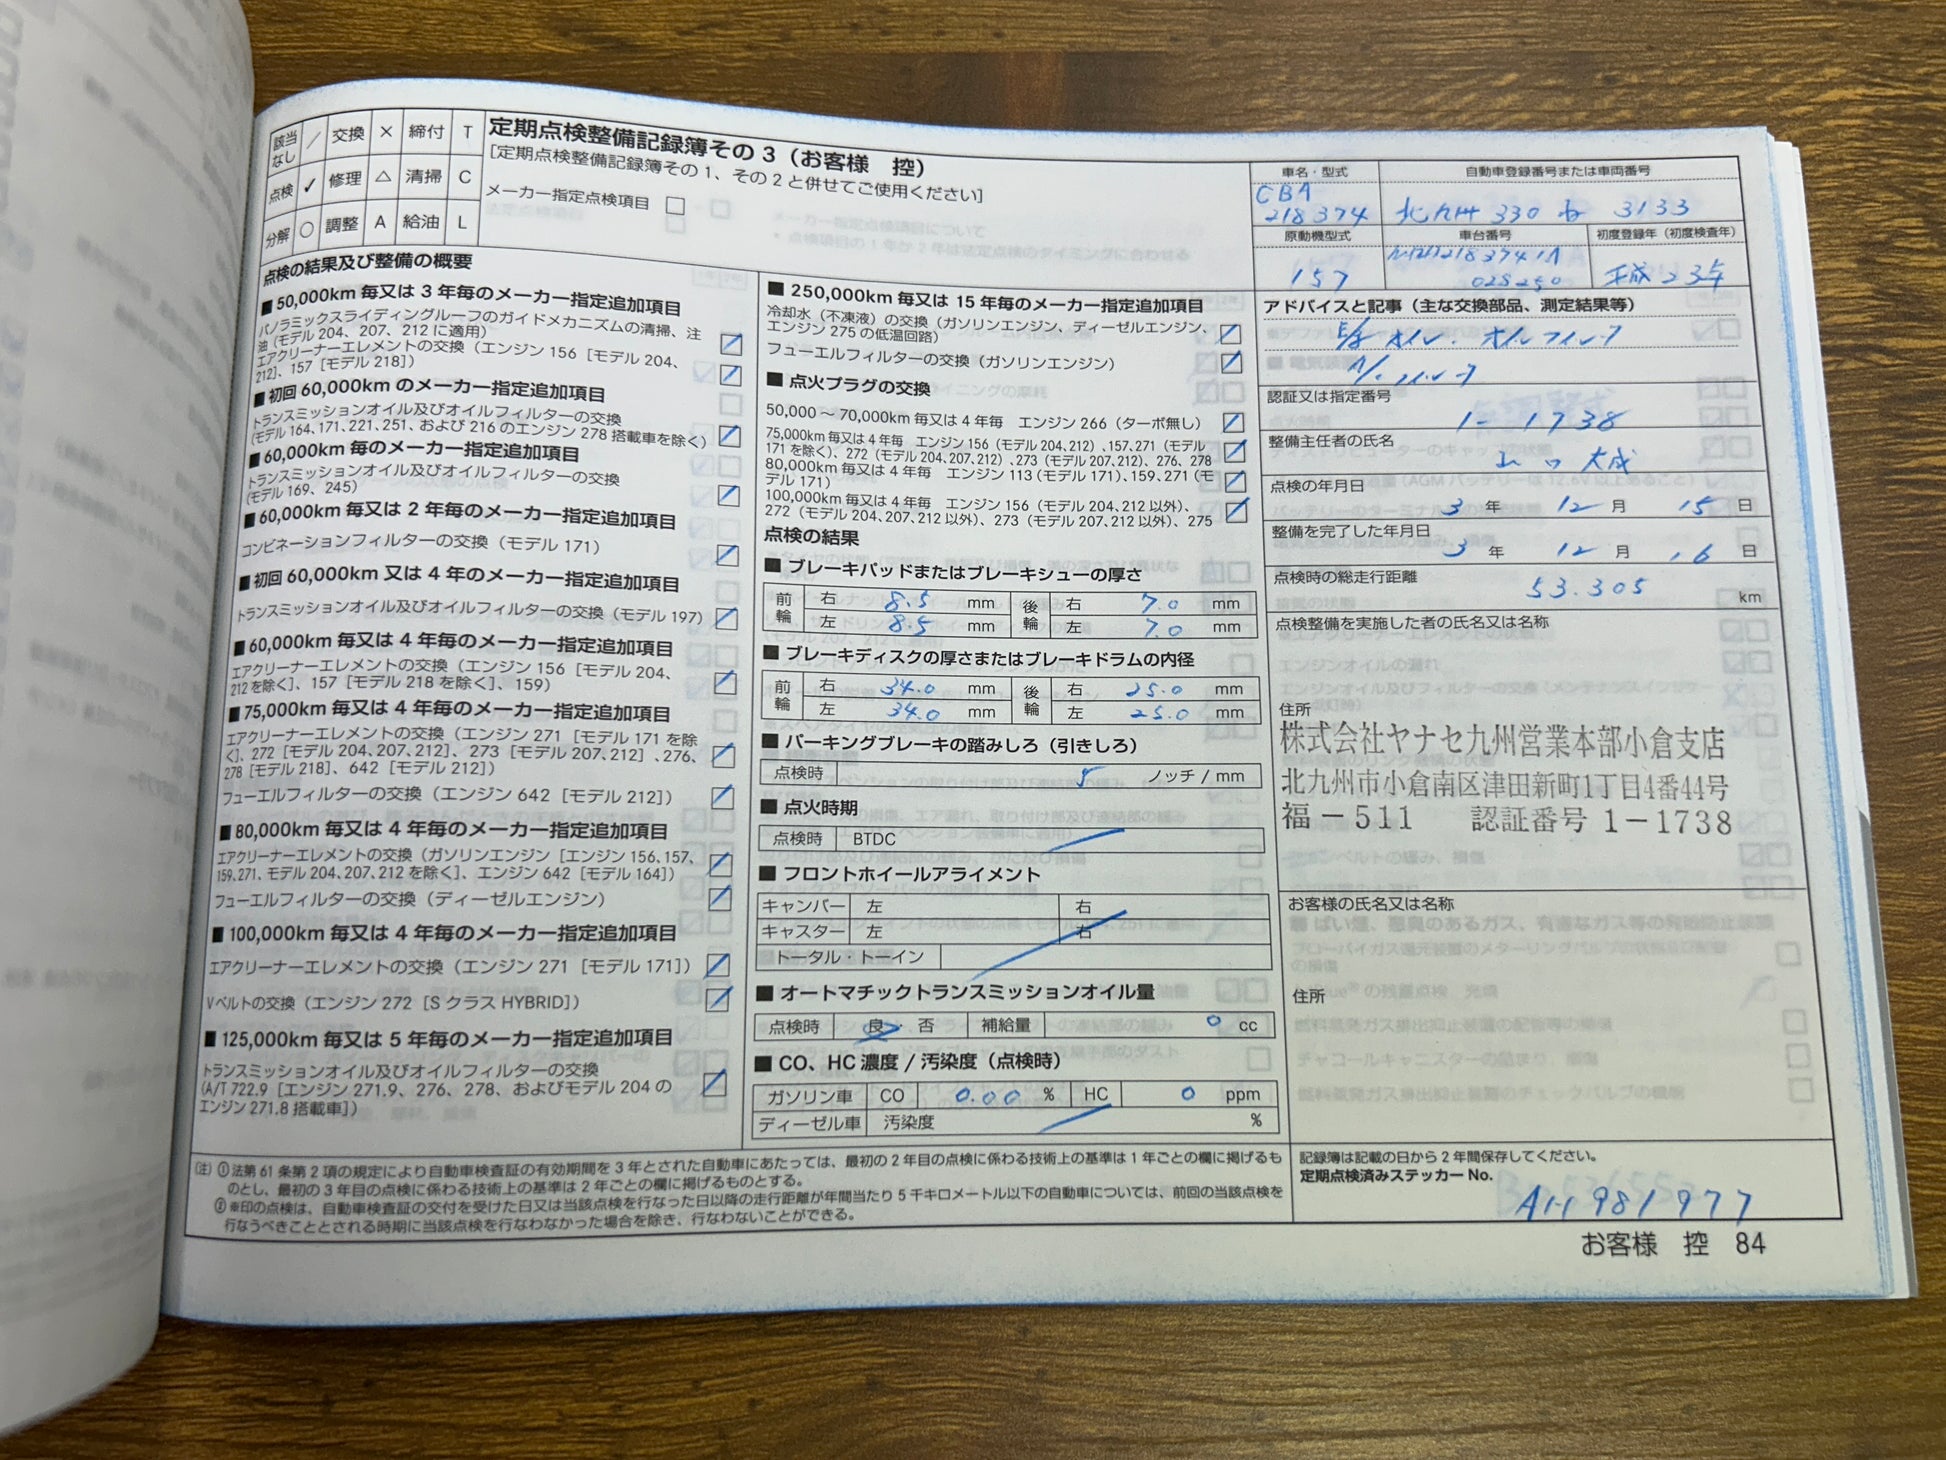 該当なし ／ 交換 × 締付 T
点検 ✓ 修理 △ 清掃 C
分解 ○ 調整 A 給油 L
定期点検整備記録簿その3（お客様　控）
[定期点検整備記録簿その1、その2と併せてご使用ください]
メーカー指定点検項目 □
点検の結果及び整備の概要
■50,000km 毎又は3年毎のメーカー指定追加項目
パノラミックスライディングルーフのガイドメカニズムの清掃、注
油（モデル204、207、212に適用）
エアクリーナーエレメントの交換（エンジン156［モデル204、
212］、157［モデル218］）
■初回60,000kmのメーカー指定追加項目
トランスミッションオイル及びオイルフィルターの交換
（モデル164、171、221、251、および216のエンジン278搭載車を除く）
■60,000km 毎のメーカー指定追加項目
トランスミッションオイル及びオイルフィルターの交換
（モデル169、245）
■60,000km 毎又は2年毎のメーカー指定追加項目
コンビネーションフィルターの交換（モデル171）
■初回60,000km 又は4年毎のメーカー指定追加項目
トランスミッションオイル及びオイルフィルターの交換（モデル197）
■60,000km 毎又は4年毎のメーカー指定追加項目
エアクリーナーエレメントの交換（エンジン156［モデル204、
212を除く］、157［モデル218を除く］、159）
■75,000km 毎又は4年毎のメーカー指定追加項目
エアクリーナーエレメントの交換（エンジン271［モデル171を除
く］、272［モデル204、207、212］、273［モデル207、212］、276、
278［モデル218］、642［モデル212］）
フューエルフィルターの交換（エンジン642［モデル212］）
■80,000km 毎又は4年毎のメーカー指定追加項目
エアクリーナーエレメントの交換（ガソリンエンジン［エンジン156、157、
159、271、モデル204、207、212を除く］、エンジン642［モデル164］）
フューエルフィルターの交換（ディーゼルエンジン）
■100,000km 毎又は4年毎のメーカー指定追加項目
エアクリーナーエレメントの交換（エンジン271［モデル171］）
Vベルトの交換（エンジン272［SクラスHYBRID］）
■125,000km 毎又は5年毎のメーカー指定追加項目
トランスミッションオイル及びオイルフィルターの交換
（A/T 722.9［エンジン271.9、276、278、およびモデル204の
エンジン271.8搭載車］）
■250,000km 毎又は15年毎のメーカー指定追加項目
冷却水（不凍液）の交換（ガソリンエンジン、ディーゼルエンジン、
エンジン275の低温回路）
フューエルフィルターの交換（ガソリンエンジン）
■点火プラグの交換
50,000～70,000km毎又は4年毎　エンジン266（ターボ無し）
75,000km毎又は4年毎　エンジン156（モデル204、212）、157、271（モデル
171を除く）、272（モデル204、207、212）、273（モデル207、212）、276、278
80,000km毎又は4年毎　エンジン113（モデル171）、159、271（モ
デル171）
100,000km毎又は4年毎　エンジン156（モデル204、212以外）、
272（モデル204、207、212以外）、273（モデル207、212以外）、275
点検の結果
■ブレーキパッドまたはブレーキシューの厚さ
前輪 右 8.5 mm 後輪 右 7.0 mm
左 8.5 mm 左 7.0 mm
■ブレーキディスクの厚さまたはブレーキドラムの内径
前輪 右 34.0 mm 後輪 右 25.0 mm
左 34.0 mm 左 25.0 mm
■パーキングブレーキの踏みしろ（引きしろ）
点検時 5 ノッチ / mm
■点火時期
点検時 BTDC
■フロントホイールアライメント
キャンバー 左 右
キャスター 左 右
トータル・トーイン
■オートマチックトランスミッションオイル量
点検時 良・否 補給量 0 cc
■CO、HC濃度 / 汚染度（点検時）
ガソリン車 CO 0.00 % HC 0 ppm
ディーゼル車 汚染度 %
車名・型式 自動車登録番号または車両番号
CBA
218374 北九州 330 3133
原動機型式 車台番号 初度登録年（初度検査年）
157 平成23年
アドバイスと記事（主な交換部品、測定結果等）
E/g オイル・オイルフィルター
認証又は指定番号
1-1738
整備主任者の氏名
山口 大成
点検の年月日
3 年 12 月 15 日
整備を完了した年月日
3 年 12 月 16 日
点検時の総走行距離
53.305 km
点検整備を実施した者の氏名又は名称
住所
株式会社ヤナセ九州営業本部小倉支店
北九州市小倉南区津田新町1丁目4番44号
福－511　認証番号 1－1738
お客様の氏名又は名称
住所
（注）①法第61条第2項の規定により自動車検査証の有効期間を3年とされた自動車にあたっては、最初の2年目の点検に係わる技術上の基準は1年ごとの欄に掲げるも
のとし、最初の3年目の点検に係わる技術上の基準は2年ごとの欄に掲げるものとする。
②※印の点検は、自動車検査証の交付を受けた日又は当該点検を行なった日以降の走行距離が年間当たり5千キロメートル以下の自動車については、前回の当該点検を
行なうべきこととされる時期に当該点検を行なわなかった場合を除き、行なわないことができる。
記録簿は記載の日から2年間保存してください。
定期点検済みステッカーNo.
お客様　控　84